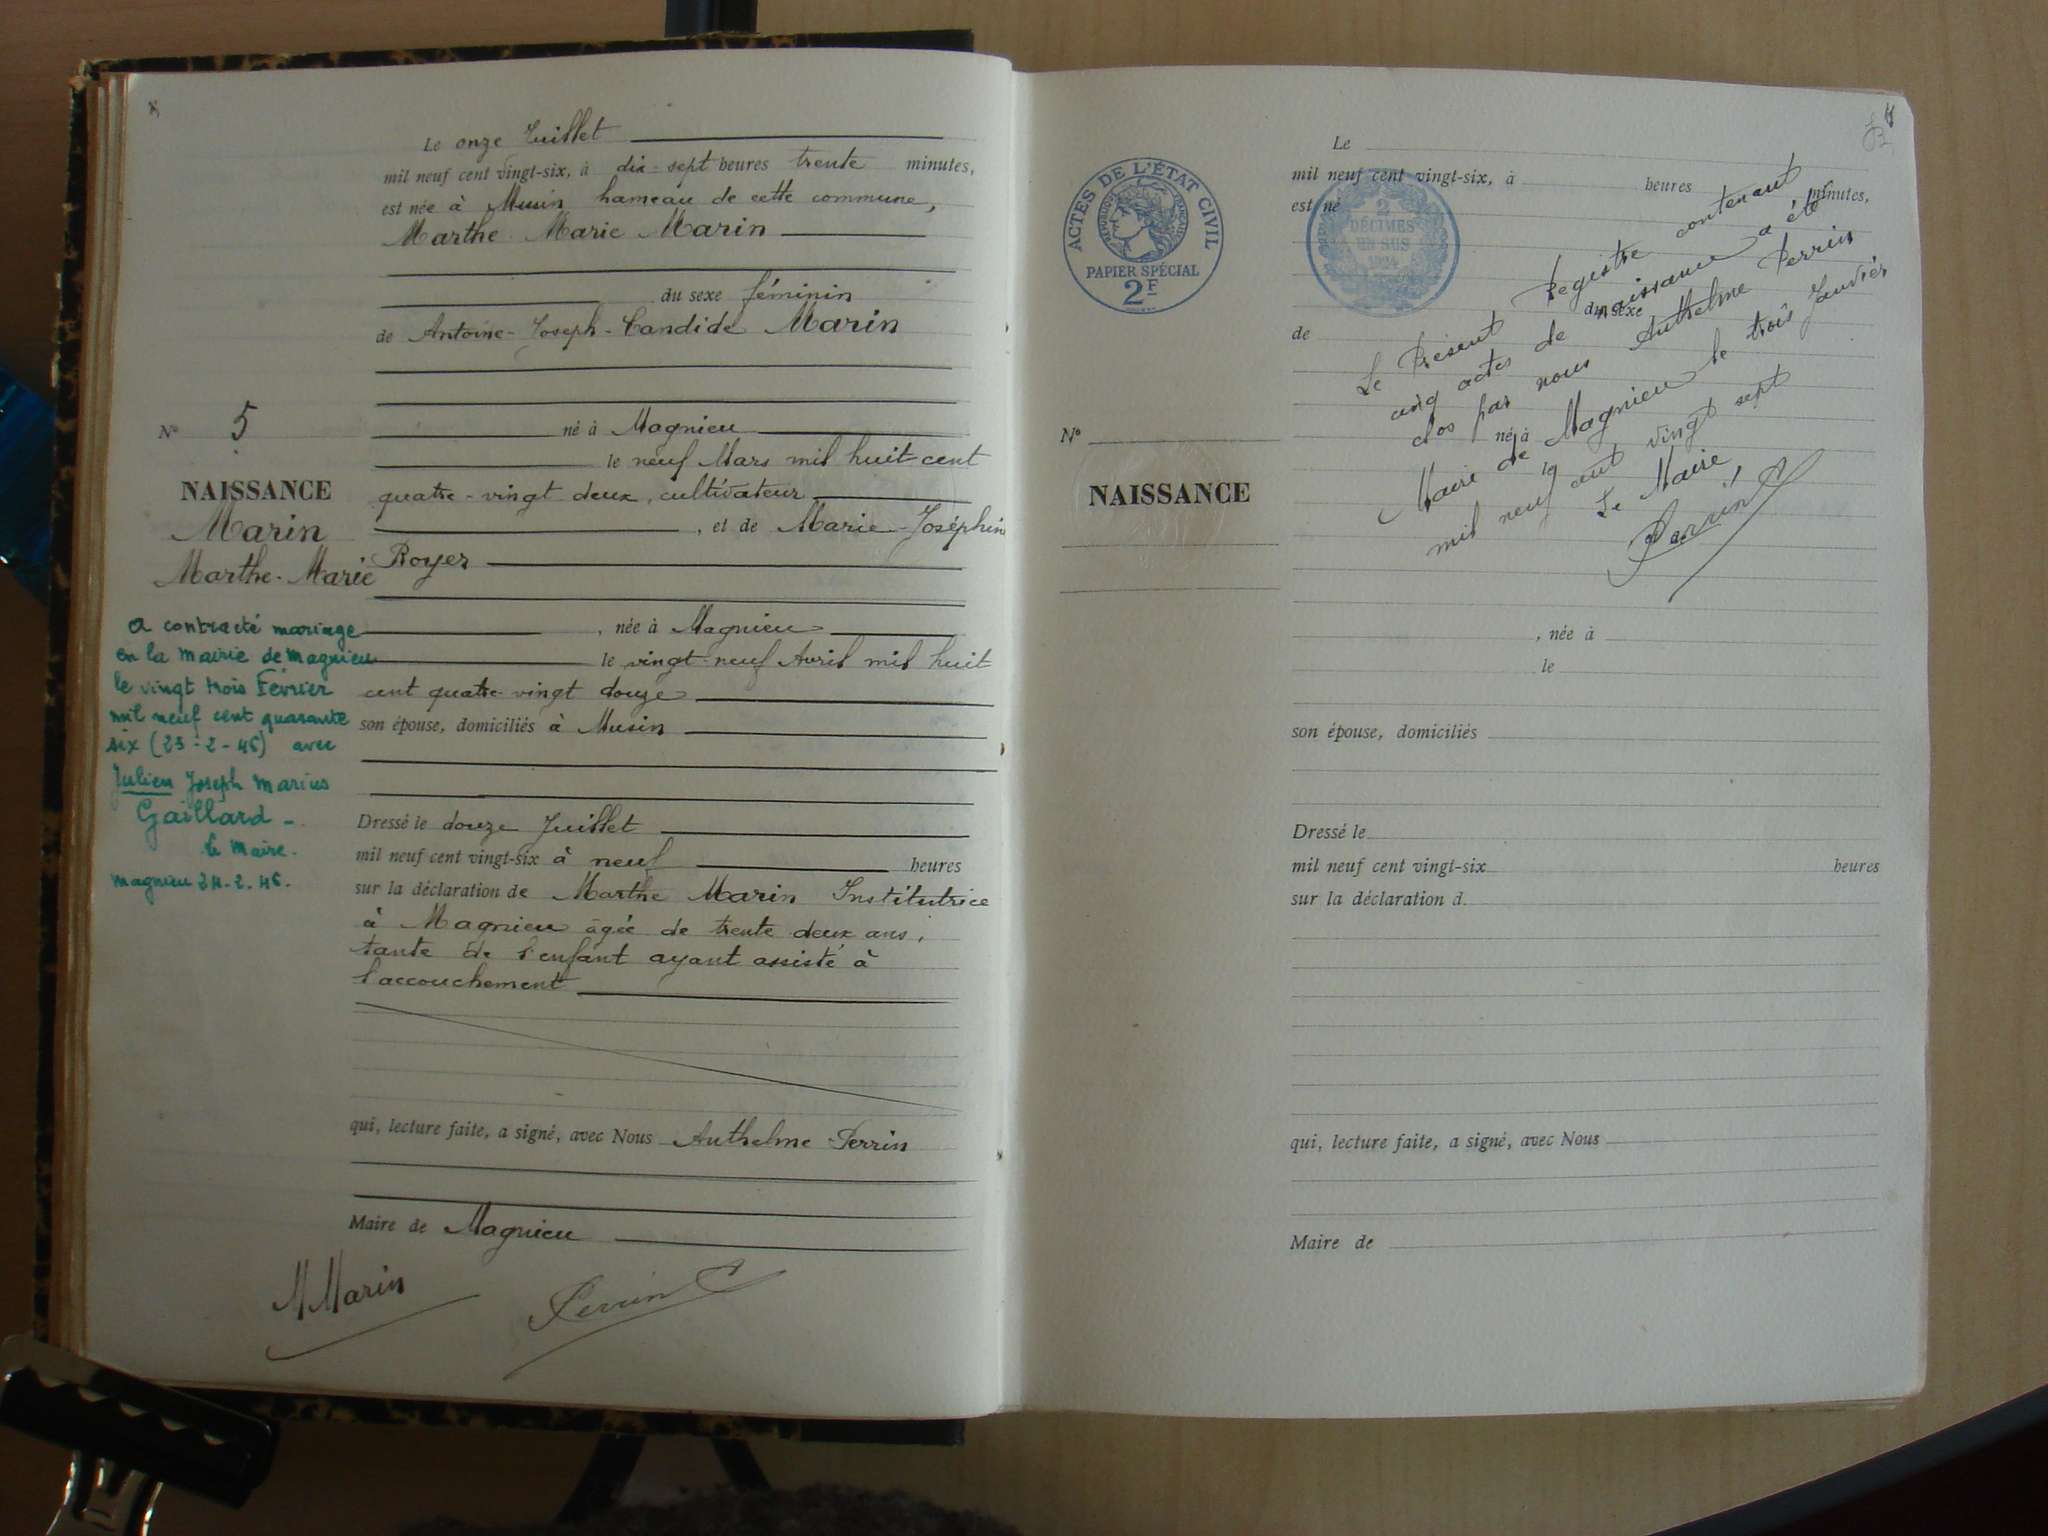 Le onze Juillet
mil neuf cent vingt-six, à dix-sept heures trente minutes,
est née à Musin hameau de cette commune,
Marthe Marie Marin
du sexe féminin
de Antoine-Joseph-Candide Marin
né à Magnieu
le neuf Mars mil huit cent
quatre-vingt deux, cultivateur
, et de Marie-Joséphine
Royer
, née à Magnieu
le vingt-neuf Avril mil huit
cent quatre-vingt douze
son épouse, domiciliés à Musin
Dressé le douze Juillet
mil neuf cent vingt-six à neuf heures
sur la déclaration de Marthe Marin Institutrice
à Magnieu âgée de trente deux ans,
tante de l'enfant ayant assisté à
l'accouchement
qui, lecture faite, a signé, avec Nous Anthelme Perrin
Maire de Magnieu
MMarin
Perrin A
N° 5
NAISSANCE
Marin
Marthe-Marie
a contracté mariage
en la mairie de Magnieu
le vingt trois Février
mil neuf cent quarante
six (23-2-46) avec
Julien Joseph Marius
Gaillard -
le Maire.
Magnieu 24.2.46.
ACTES DE L'ÉTAT CIVIL
RÉPUBLIQUE FRANÇAISE
PAPIER SPÉCIAL
2F
2
DÉCIMES
EN SUS
1924
N°
NAISSANCE
Le
mil neuf cent vingt-six, à heures minutes,
est né
du sexe
de
né à
le
, née à
le
son épouse, domiciliés
Dressé le
mil neuf cent vingt-six heures
sur la déclaration d
qui, lecture faite, a signé, avec Nous
Maire de
Le Présent Registre contenant
cinq actes de naissance a été
clos par nous Anthelme Perrin
Maire de Magnieu le trois Janvier
mil neuf cent vingt sept
Le Maire,
Perrin A